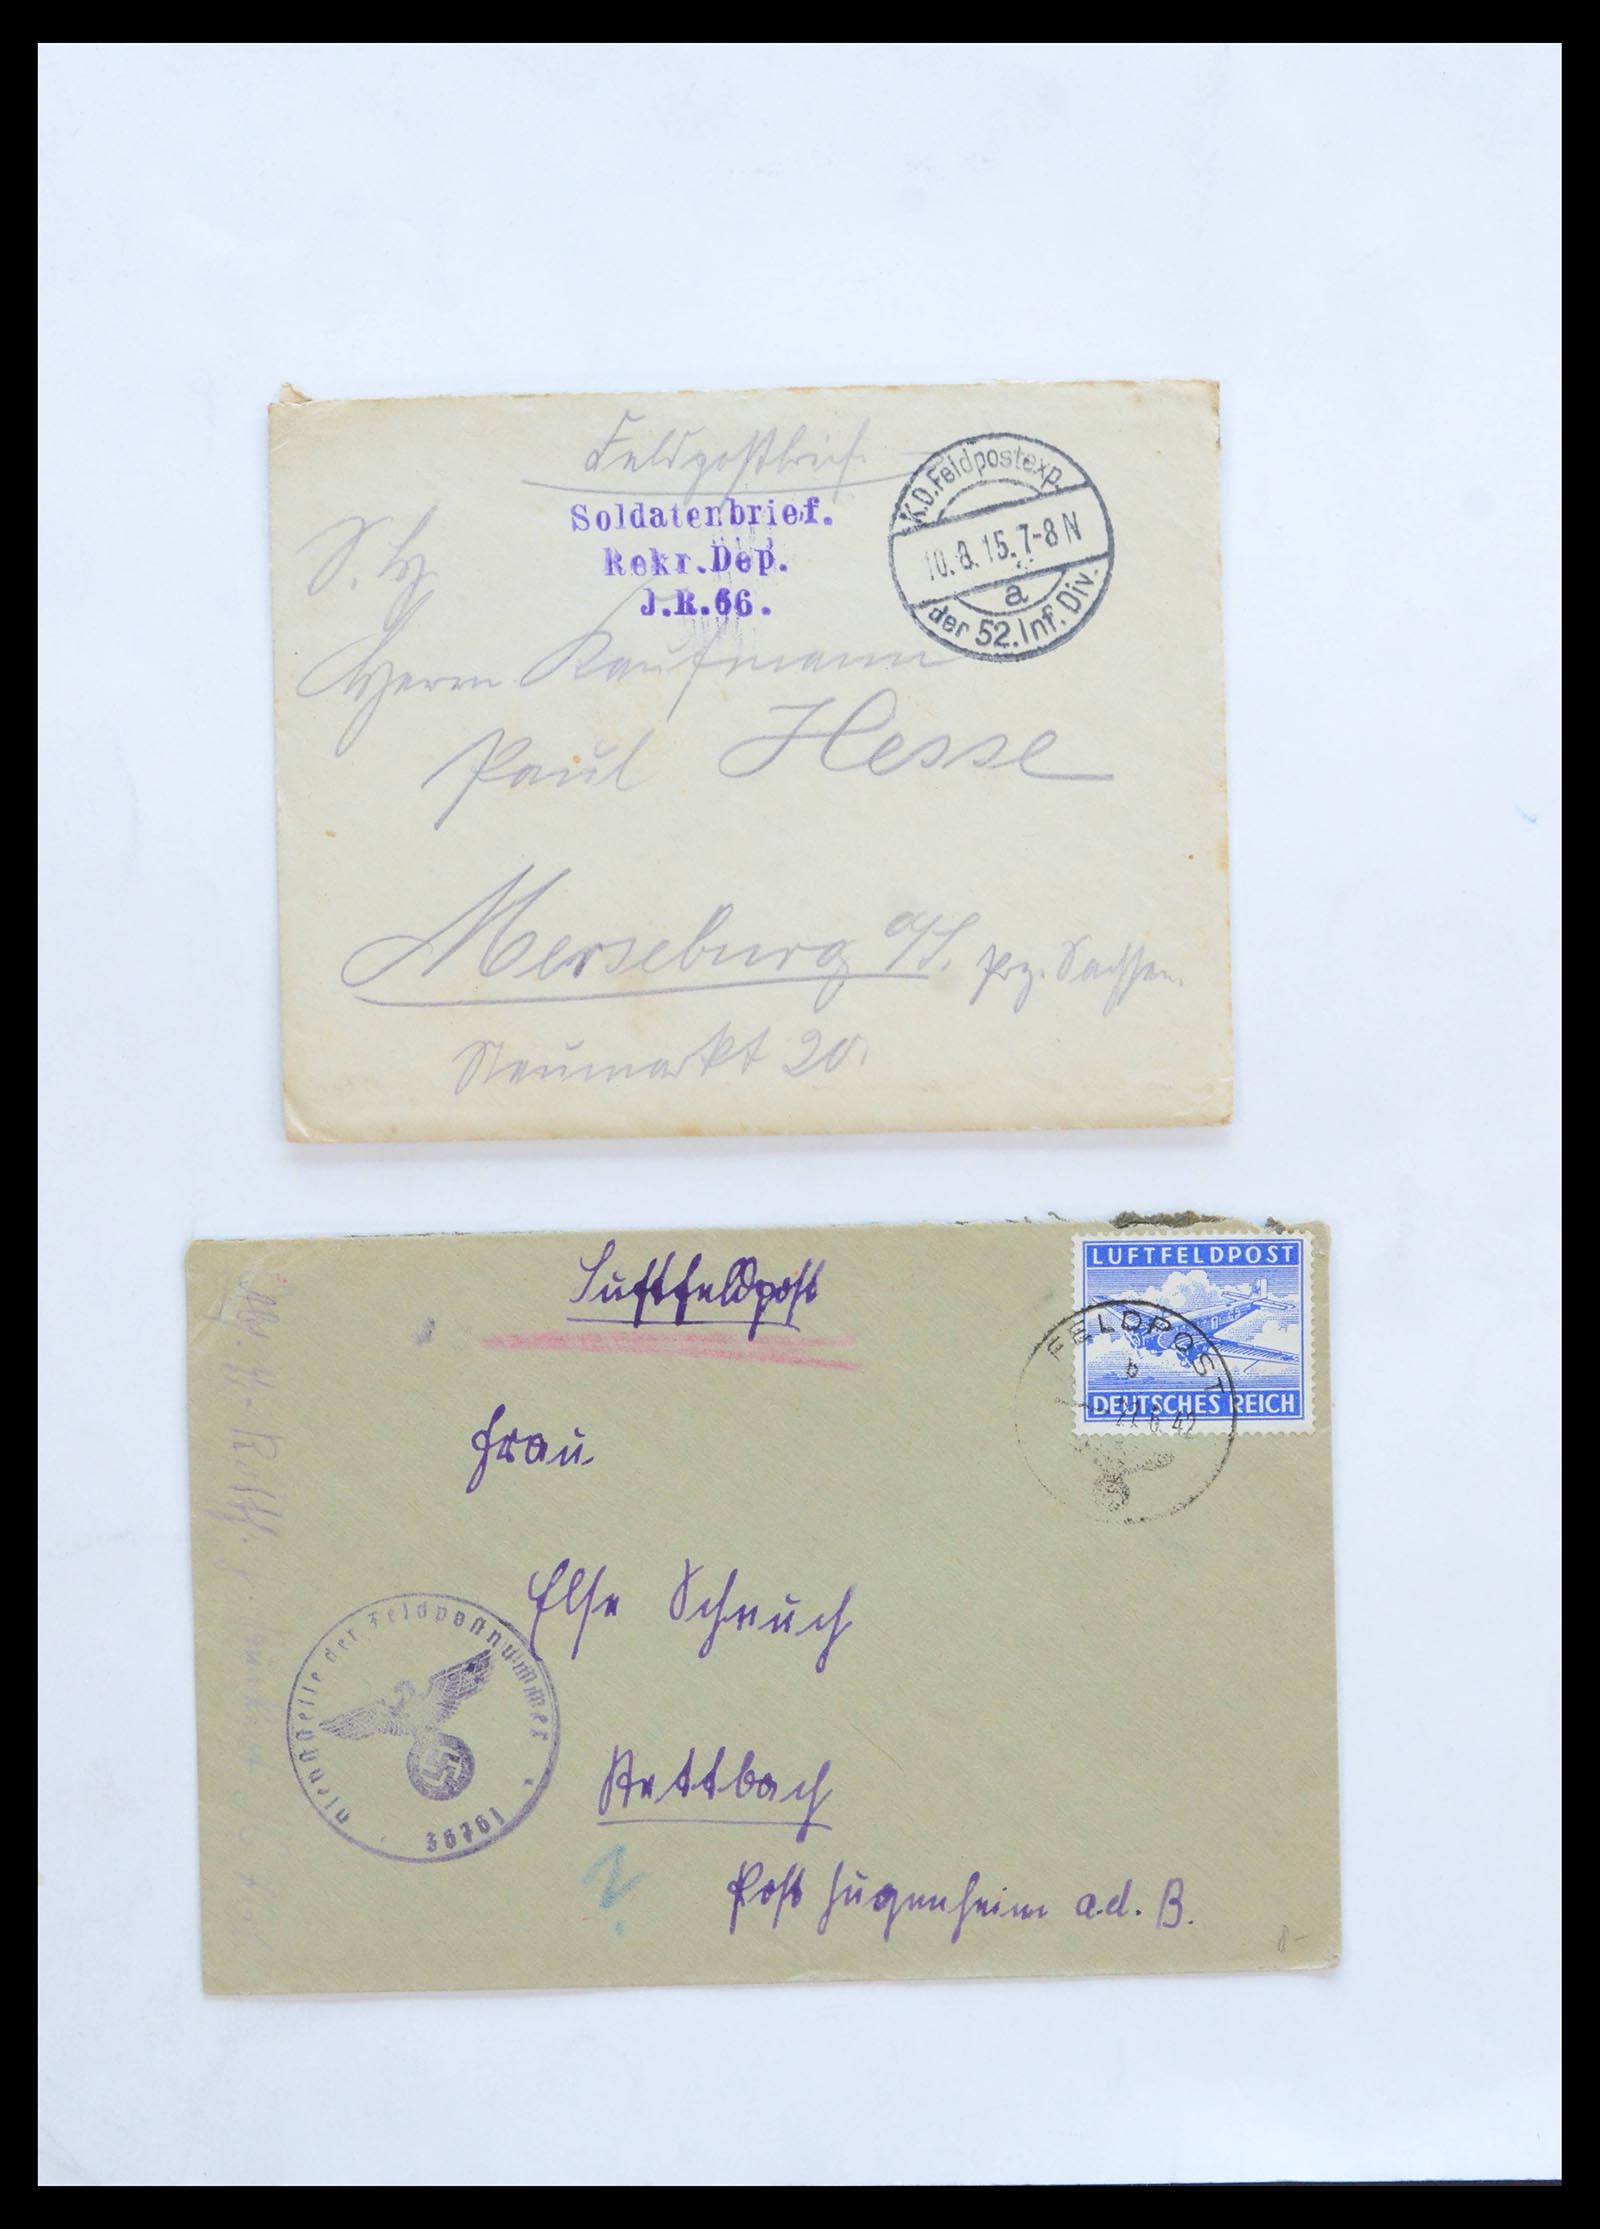 Feldpostbrief.
K.D. Feldpostexp.
10.8.15.7-8N
a
der 52. Inf. Div.
Soldatenbrief.
Rekr. Dep.
J.R. 66.
S. H.
Herrn Kaufmann
Paul Hesse
Merseburg a/S. Prz. Sachsen.
Neumarkt 20.
LUFTFELDPOST
DEUTSCHES REICH
FELDPOST
b
6. 42
Luftfeldpost
Frau
Else
Dienststelle der Feldpostnummer
Rettbach
Post Hugenheim a.d. B.
8-